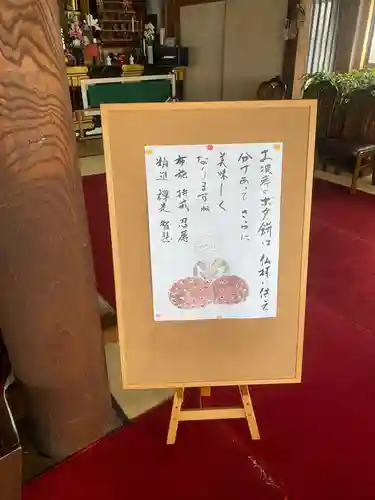 お彼岸のボタ餅は 仏様に供え
分けあって さらに
美味しく
なりますね
布施 持戒 忍辱
精進 禅定 智慧